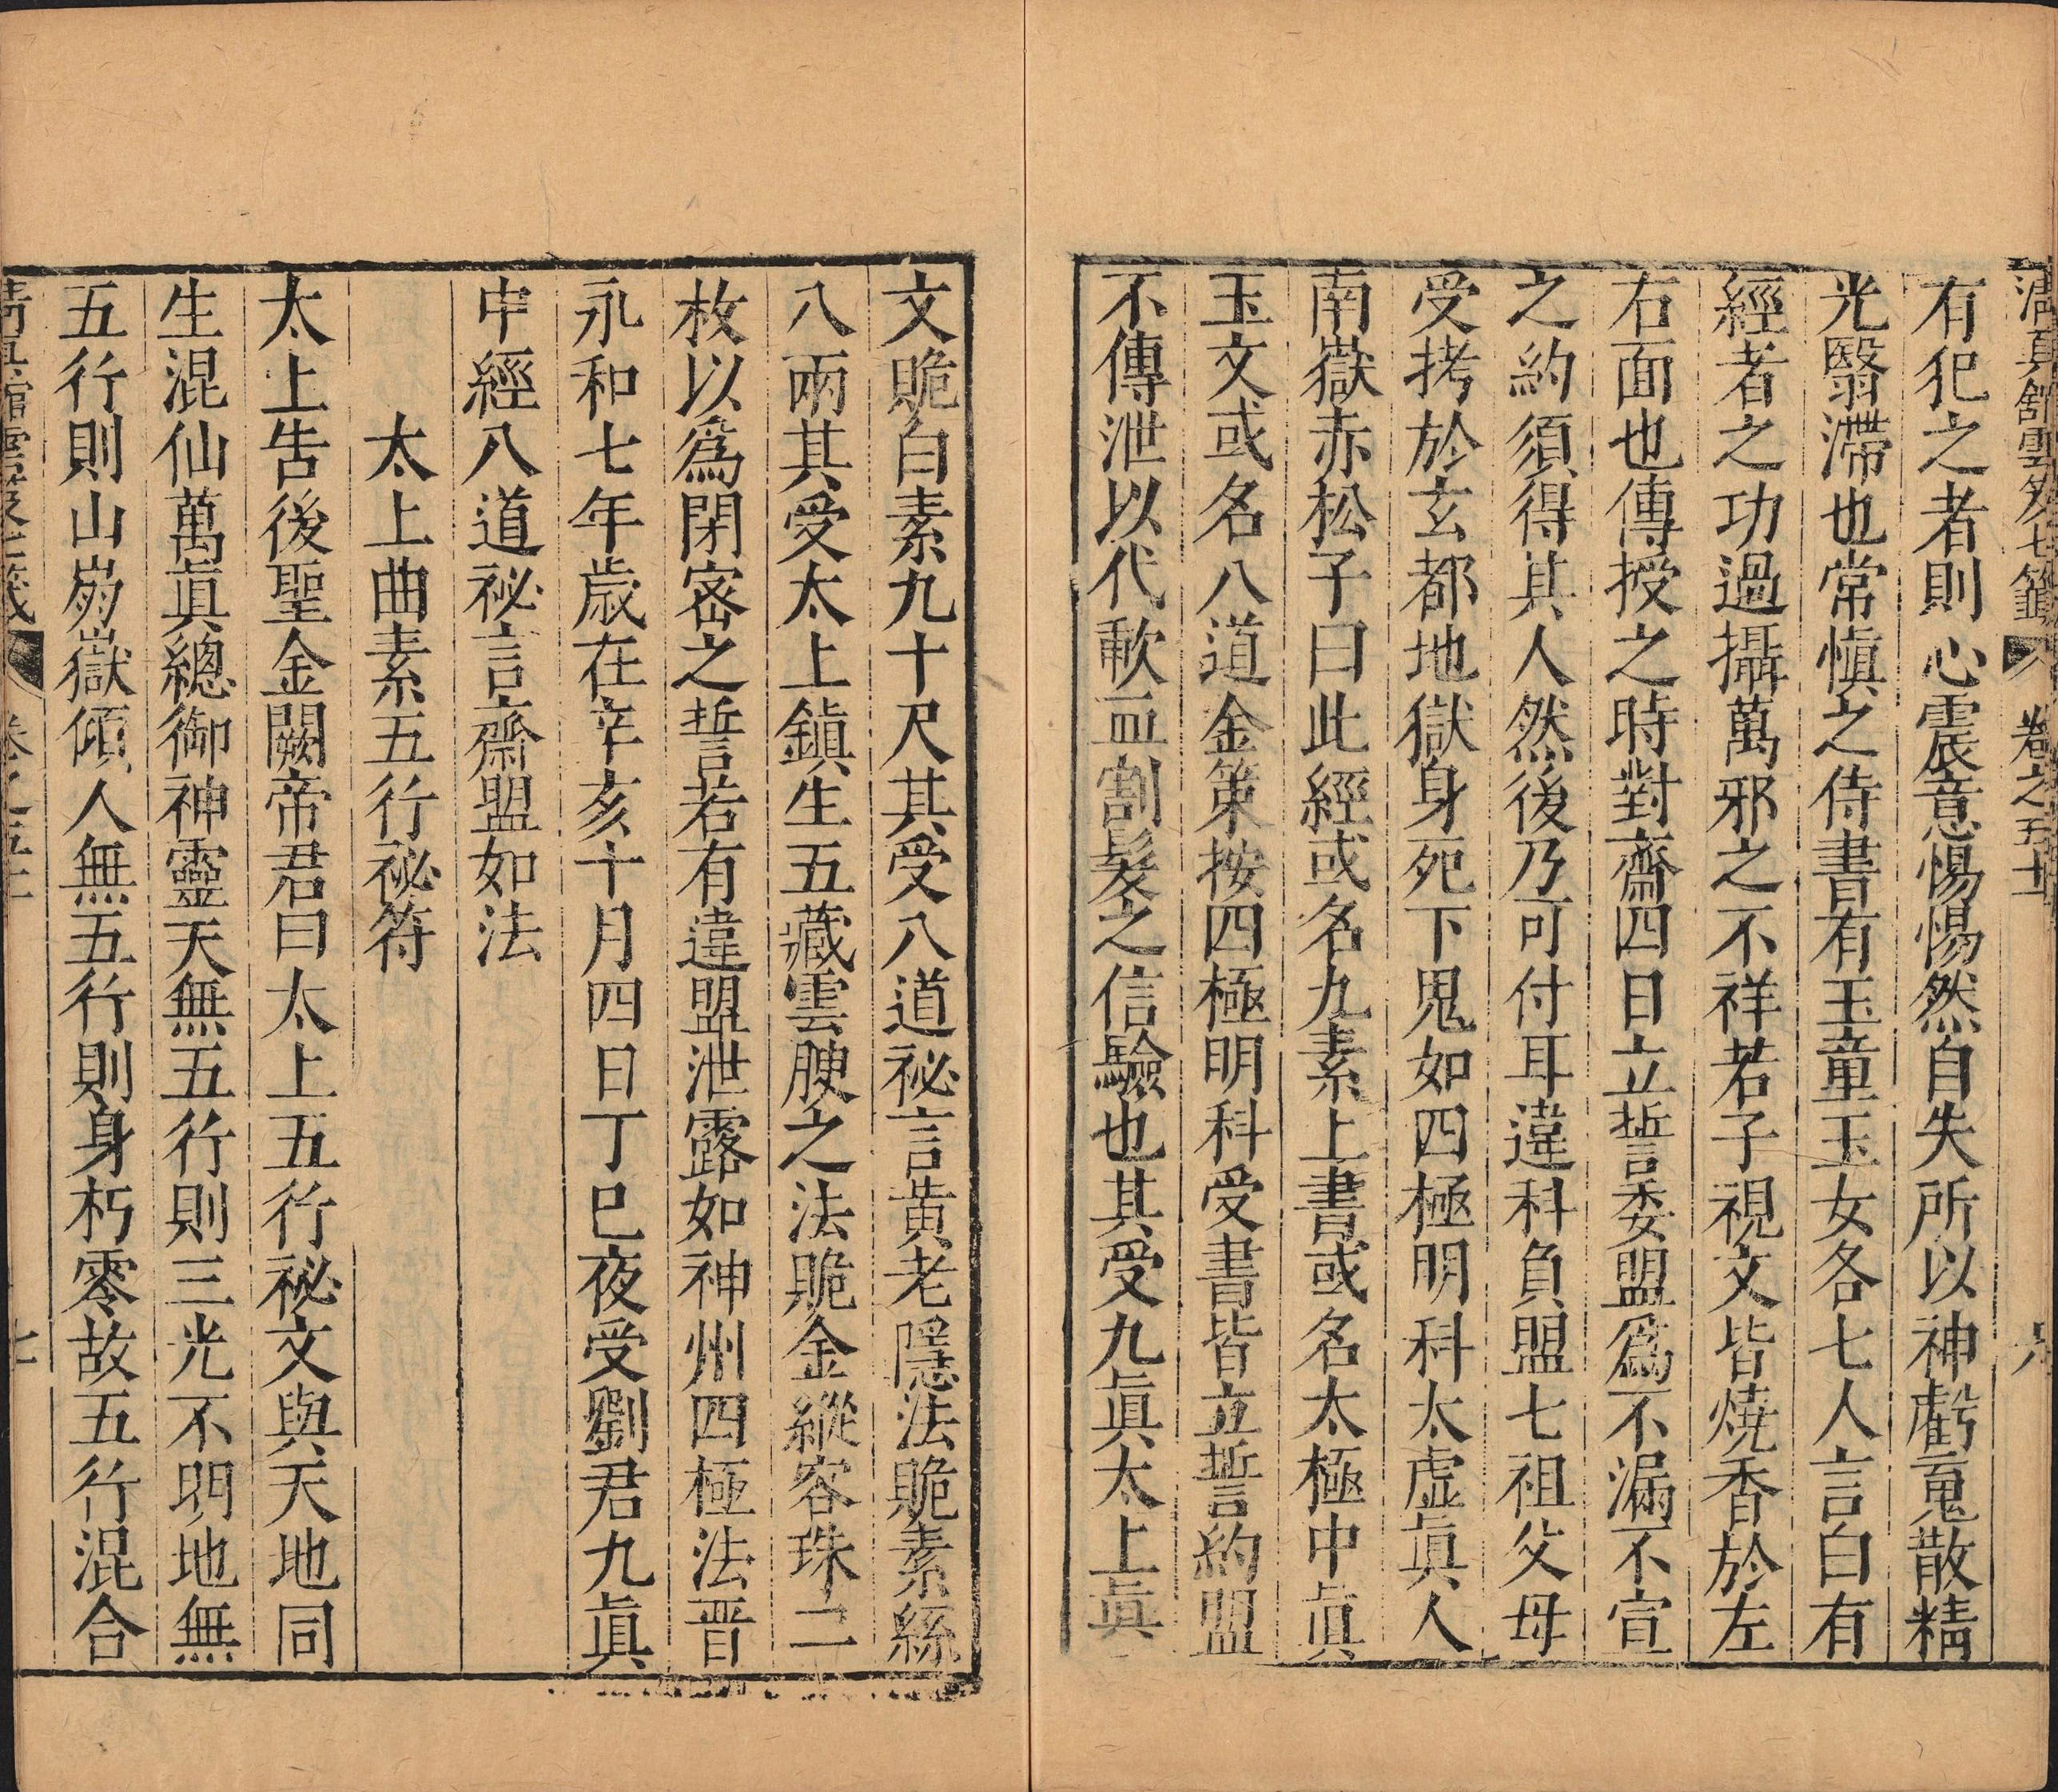 清真舘雲笈七籤 卷之五十一 六
有犯之者則心震意惕惕然自失所以神虧䰟散精
光翳滯也常愼之侍書有玉童玉女各七人言白有
經者之功過攝萬邪之不祥若子視文皆燒香於左
右面也傳授之時對齋四日立誓委盟爲不漏不宣
之約須得其人然後乃可付耳違科負盟七祖父母
受拷於玄都地獄身死下鬼如四極明科太虛眞人
南嶽赤松子曰此經或名九素上書或名太極中眞
玉文或名八道金策按四極明科受書皆立誓約盟
不傳泄以代軟血割髮之信驗也其受九眞太上眞
文貽白素九十尺其受八道祕言黃老隱法貽素絲
八兩其受太上鎮生五藏雲腴之法貽金縱容珠二
枚以爲閉密之誓若有違盟泄露如神州四極法晉
永和七年歲在辛亥十月四日丁巳夜受劉君九眞
中經八道祕言齋盟如法
太上曲素五行祕符
太上告後聖金闕帝君曰太上五行祕文與天地同
生混仙萬眞總御神靈天無五行則三光不明地無
五行則山崩嶽傾人無五行則身朽零故五行混合